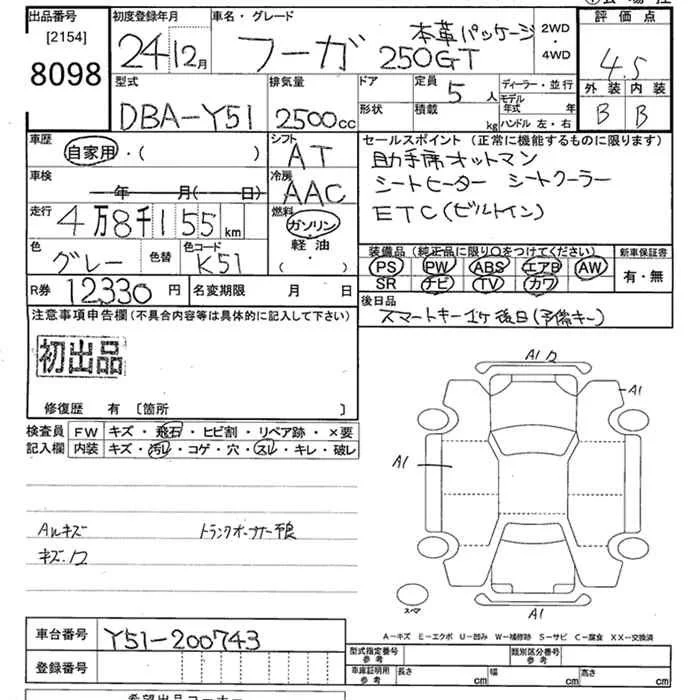 出品番号 初度登録年月 車名・グレード 評価点
[2154]
8098
24年12月 フーガ 本革パッケージ 250GT 2WD 4WD 4.5
型式 排気量 ドア 定員 5人 ディーラー・並行 外装 内装
DBA-Y51 2500cc 形状 積載 kg モデル年式 年 ハンドル 左・右 B B
車歴 シフト セールスポイント(正常に機能するものに限ります)
自家用・( ) AT 助手席オットマン
車検 年 月(日) 冷房 AAC シートヒーター シートクーラー
走行 4万8千155km 燃料 ガソリン・軽油・( ) ETC(ビルトイン)
色 グレー 色替 色コード K51
装備品(純正品に限り○をつけてください) 新車保証書
PS PW ABS エアB AW 有・無
SR ナビ TV カワ
R券 12330円 名変期限 月 日
後日品
スマートキー1ケ後日(予備キー)
注意事項申告欄(不具合内容等は具体的に記入して下さい)
初出品
修復歴 有 [箇所 ]
検査員 FW キズ・飛石・ヒビ割・リペア跡・×要
記入欄 内装 キズ・汚レ・コゲ・穴・スレ・キレ・破レ
A1
A1
A1
A1
AWキズ
キズ.ワ
スペア
A-キズ E-エクボ U-凹み W-補修跡 S-サビ C-腐食 XX-交換済
車台番号 Y51-200743
登録番号
型式指定番号 参考 類別区分番号 参考
車庫証明用 参考 長さ cm 幅 cm 高さ cm
希望出品コーナー